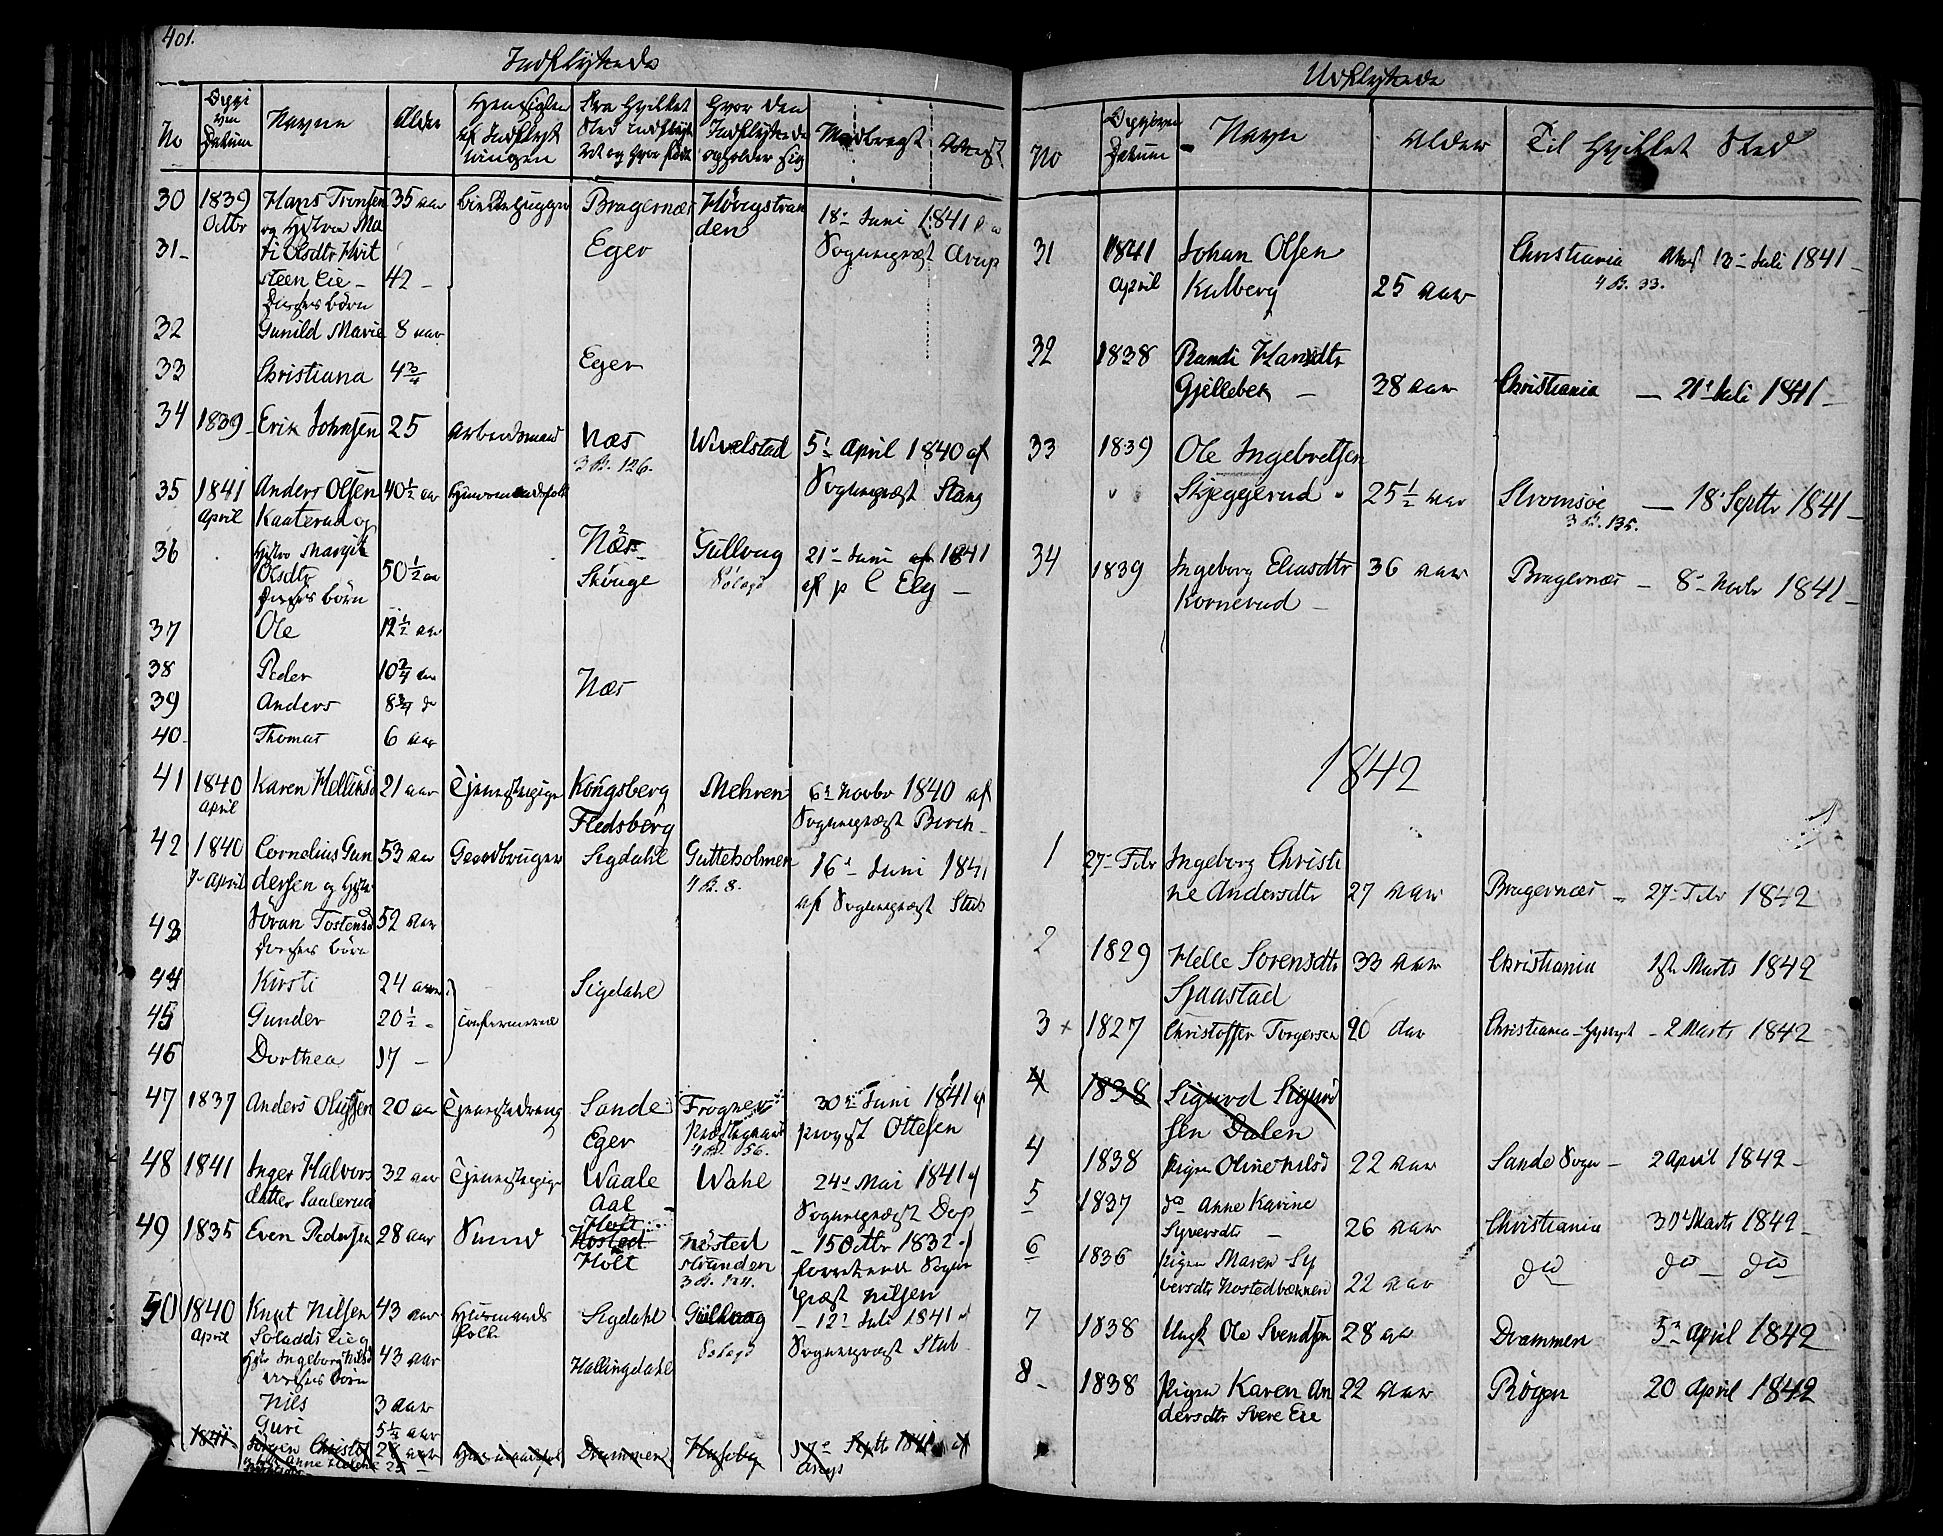 401.
Indflyttede
No
Datum
Navne
Alder
Hensigten
af Indflyt
ningen
Fra hvilket
Sted indflyt
tet og hvor født
Hvor den
Indflyttede
opholder sig
Medbragt
Attest
30 1839 Hans Tronsen 35 aar Bragernæs
Octbr og Hustru Ma den 18de Juni 1841
31 ri Olsdtr Hvit Eger Sogneprest Arup
steen Eie 42
Deres børn
32 Gunild Marie 8 aar
33 Christiana 4 3/4 Eger
34 1839 Erik Johnsen 25 Arbeidsmand Næs Wivelstad 5te April 1840 af
3 B. 126. Sogneprest Stang
35 1841 Anders Olsen 40 1/2 aar Huusmandsfolk
April Kaaterud og
36 Hustru Margit Næs Gullaug 21de Juni 1841
Olsdtr 50 1/2 aar af p C Ely
Deres børn
37 Ole 12 1/2 aar
38 Peder 10 3/4 aar
39 Anders 8 3/4 d Næs
40 Thomas 6 aar
41 1840 Karen Hellik 21 aar Tjenestepige Kongsberg Mehren 6te Novbr 1840 af
April Fledsberg Sogneprest Birch
42 1840 Cornelius Gun 53 aar Gaardbruger Sigdahl Gutteholmen 16de Juni 1841
7de April dersen og Hustr 4 B. 8. af Sogneprest Stub
43 Jøran Tostensd 52 aar
Deres børn
44 Kirsti 24 aar Sigdahl
45 Gunder 20 1/2 Confirmerede
46 Dorthea 17
47 1837 Anders Olufsen 20 aar Tjenestedreng Sande Frogner 30te Juni 1841 af
Eger Præstegaard provst Ottesen
4 B. 56.
48 1841 Inger Halvors 32 aar Tjenestepige Waale Wahl 24de Mai 1841 af
datter Saalerud Aal Sogneprest Dop
49 1835 Even Pedersen 28 aar Svend Holt Nøsted 15 Octbr 1832 af
Holt stranden Sogne
3 B. 124. præst Nilsen
50 1840 Knut Nilsen 43 aar Huusmands Sigdahl Gullaug 12te Juli 1841 af
April folk Sogneprest Stub
Hustr Ingeborg Nilsd 43 aar Hallingdahl
deres børn
Nils 3 aar
Guri 5 1/2 aar
1841 Jørgen Christof 28 aar Huusmandsfolk Drammen Husebye 17de Septbr 1841 af
Anne Helene 25
Udflyttede
No
Datum
Navn
Alder
Til hvilket Sted
31 1841 Johan Olsen Christiania Attest 13de Juli 1841
April Kulberg 25 aar 4 B. 33.
32 1838 Randi Hansdtr
Gjellebek 38 aar Christiania 21de Juli 1841
33 1839 Ole Ingebretsen
Skjeggerud 25 1/2 aar Stromsøe 18de Septbr 1841
3 B. 135.
34 1839 Ingeborg Eliasdtr 36 aar Bragernæs 8de Novbr 1841
Kornerud
1842
1 27de Febr Ingeborg Christi
ne Andersdtr 27 aar Bragernæs 27de Febr 1842
2 1829 Helle Sorensdtr 33 aar Christiania 1ste Marts 1842
Sjaastad
3 1827 Christoffer Torgersen 20 aar Christiania 2 Marts 1842
4 1838 Sigurd Sigurd
sen Dalen
4 1838 Pigen Oline Nilsd 22 aar Sande Sogn 2 April 1842
5 1837 do Anne Karine
Syversdtr 26 aar Christiania 30te Marts 1842
6 1836 Pigen Maren Sy
versdtr Nostedbakken 22 aar do do do
7 1838 Ungk Ole Svendsen 28 aar Drammen 5te April 1842
8 1838 Pigen Karen An 22 aar Røgen 20 April 1842
dersdtr Svere Eie